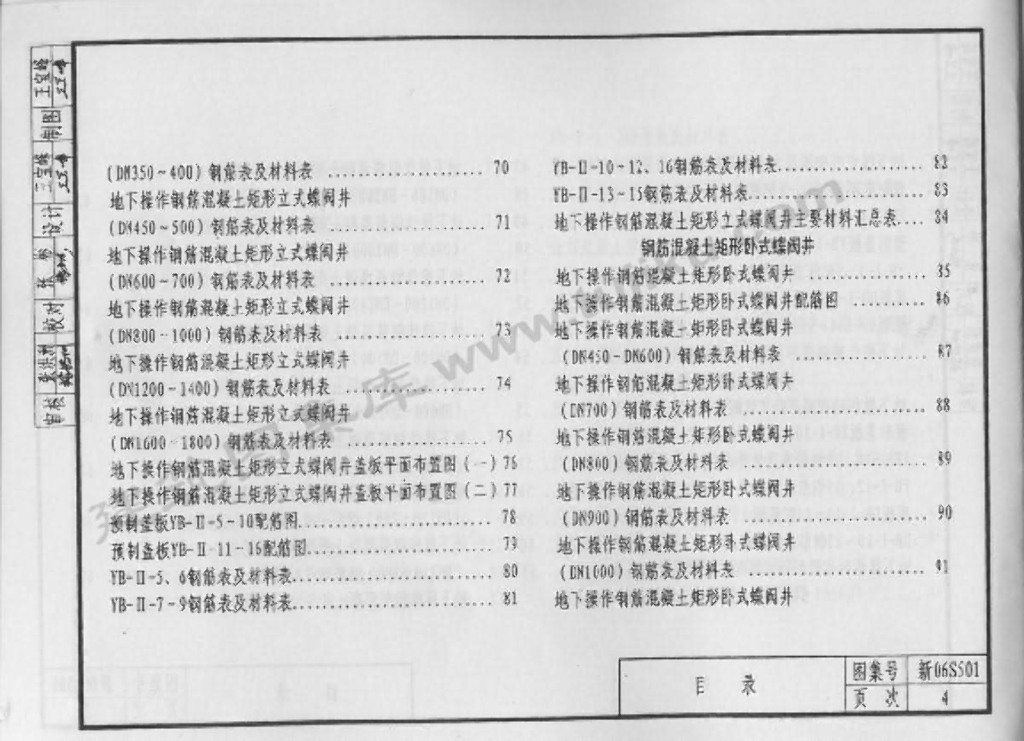 (DN350~400)钢筋表及材料表 ........ 70
地下操作钢筋混凝土矩形立式蝶阀井
(DN450~500)钢筋表及材料表 ........ 71
地下操作钢筋混凝土矩形立式蝶阀井
(DN600~700)钢筋表及材料表 ........ 72
地下操作钢筋混凝土矩形立式蝶阀井
(DN800~1000)钢筋表及材料表 ........ 73
地下操作钢筋混凝土矩形立式蝶阀井
(DN1200~1400)钢筋表及材料表 ........ 74
地下操作钢筋混凝土矩形立式蝶阀井
(DN1600~1800)钢筋表及材料表 ........ 75
地下操作钢筋混凝土矩形立式蝶阀井盖板平面布置图(一) 76
地下操作钢筋混凝土矩形立式蝶阀井盖板平面布置图(二) 77
预制盖板YB-Ⅱ-5~10配筋图 ........ 78
预制盖板YB-Ⅱ-11~16配筋图 ........ 79
YB-Ⅱ-5、6钢筋表及材料表 ........ 80
YB-Ⅱ-7~9钢筋表及材料表 ........ 81
YB-Ⅱ-10~12、16钢筋表及材料表 ........ 82
YB-Ⅱ-13~15钢筋表及材料表 ........ 83
地下操作钢筋混凝土矩形立式蝶阀井主要材料汇总表 .... 84
钢筋混凝土矩形卧式蝶阀井
地下操作钢筋混凝土矩形卧式蝶阀井 ........ 85
地下操作钢筋混凝土矩形卧式蝶阀井配筋图 ........ 86
地下操作钢筋混凝土矩形卧式蝶阀井
(DN450~DN600)钢筋表及材料表 ........ 87
地下操作钢筋混凝土矩形卧式蝶阀井
(DN700)钢筋表及材料表 ........ 88
地下操作钢筋混凝土矩形卧式蝶阀井
(DN800)钢筋表及材料表 ........ 89
地下操作钢筋混凝土矩形卧式蝶阀井
(DN900)钢筋表及材料表 ........ 90
地下操作钢筋混凝土矩形卧式蝶阀井
(DN1000)钢筋表及材料表 ........ 91
地下操作钢筋混凝土矩形卧式蝶阀井
目 录
图集号 新06S501
页 次 4
制图
设计
校对
审核